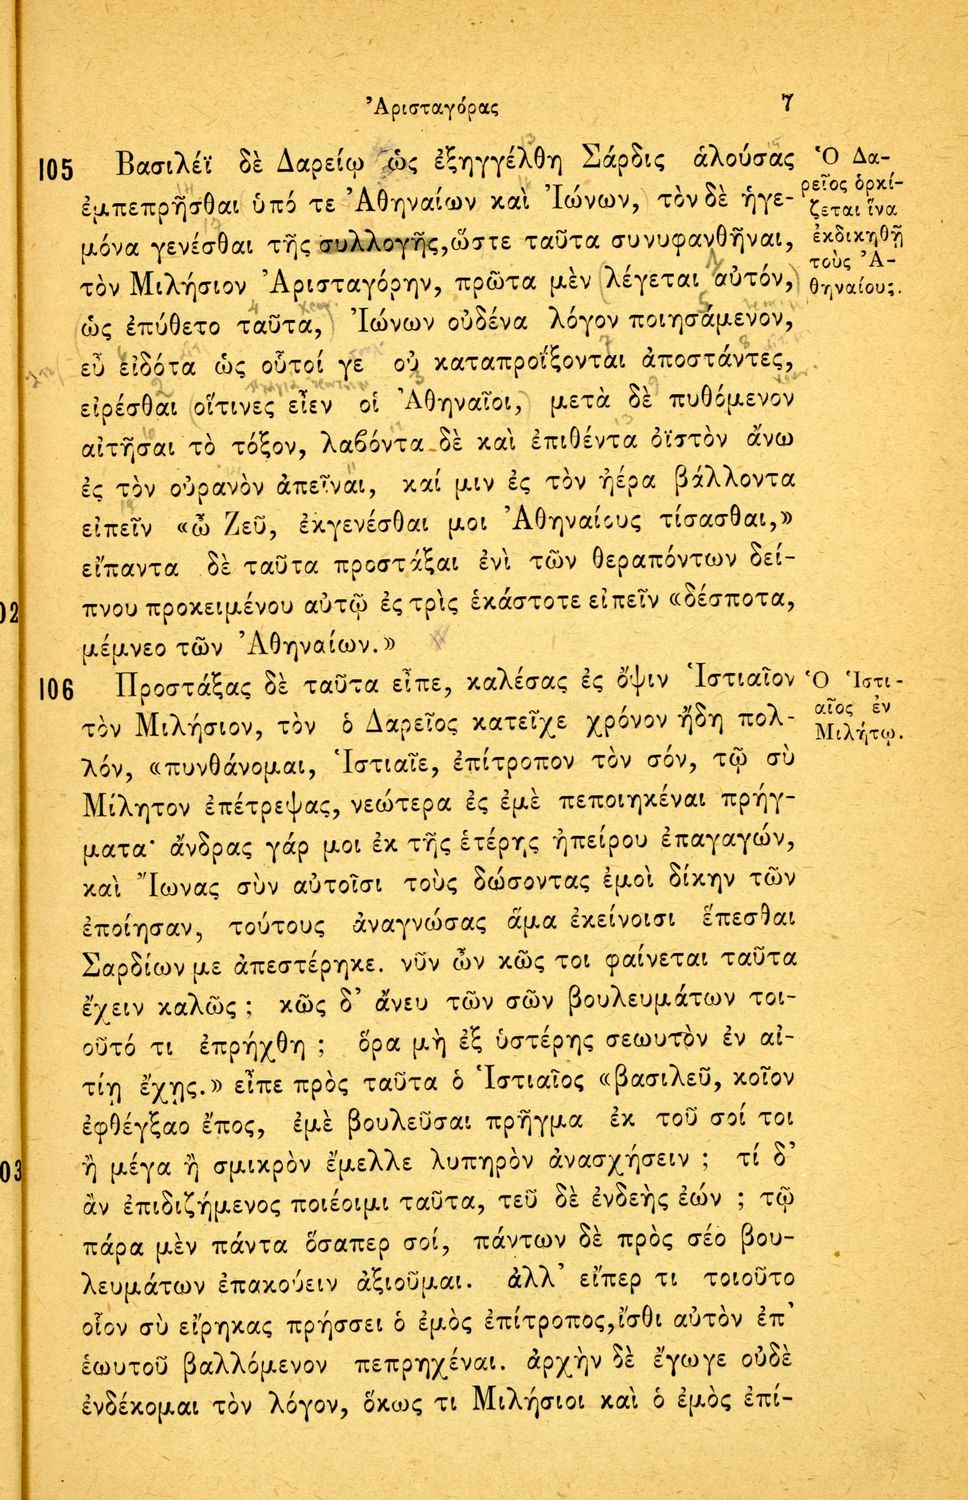 Ἀρισταγόρας 7
105 Βασιλέϊ δὲ Δαρείῳ ὡς ἐξηγγέλθη Σάρδις ἁλούσας
ἐμπεπρῆσθαι ὑπό τε Ἀθηναίων καὶ Ἰώνων, τὸν δὲ ἡγε-
μόνα γενέσθαι τῆς συλλογῆς, ὥστε ταῦτα συνυφανθῆναι,
τὸν Μιλήσιον Ἀρισταγόρην, πρῶτα μὲν λέγεται αὐτόν,
ὡς ἐπύθετο ταῦτα, Ἰώνων οὐδένα λόγον ποιησάμενον,
εὖ εἰδότα ὡς οὗτοί γε οὐ καταπροΐξονται ἀποστάντες,
εἰρέσθαι οἵτινες εἶεν οἱ Ἀθηναῖοι, μετὰ δὲ πυθόμενον
αἰτῆσαι τὸ τόξον, λαβόντα δὲ καὶ ἐπιθέντα ὀϊστὸν ἄνω
ἐς τὸν οὐρανὸν ἀπεῖναι, καί μιν ἐς τὸν ἠέρα βάλλοντα
εἰπεῖν «ὦ Ζεῦ, ἐκγενέσθαι μοι Ἀθηναίους τίσασθαι,»
εἴπαντα δὲ ταῦτα προστάξαι ἑνὶ τῶν θεραπόντων δεί-
πνου προκειμένου αὐτῷ ἐς τρὶς ἑκάστοτε εἰπεῖν «δέσποτα,
μέμνεο τῶν Ἀθηναίων.»
Ὁ Δα-
ρεῖος ὁρκί-
ζεται ἵνα
ἐκδικηθῇ
τοὺς Ἀ-
θηναίους.
02
106 Προστάξας δὲ ταῦτα εἶπε, καλέσας ἐς ὄψιν Ἱστιαῖον
τὸν Μιλήσιον, τὸν ὁ Δαρεῖος κατεῖχε χρόνον ἤδη πολ-
λόν, «πυνθάνομαι, Ἱστιαῖε, ἐπίτροπον τὸν σόν, τῷ σὺ
Μίλητον ἐπέτρεψας, νεώτερα ἐς ἐμὲ πεποιηκέναι πρήγ-
ματα· ἄνδρας γάρ μοι ἐκ τῆς ἑτέρης ἠπείρου ἐπαγαγών,
καὶ Ἴωνας σὺν αὐτοῖσι τοὺς δώσοντας ἐμοὶ δίκην τῶν
ἐποίησαν, τούτους ἀναγνώσας ἅμα ἐκείνοισι ἕπεσθαι
Σαρδίων με ἀπεστέρηκε. νῦν ὦν κῶς τοι φαίνεται ταῦτα
ἔχειν καλῶς ; κῶς δ' ἄνευ τῶν σῶν βουλευμάτων τοι-
οῦτό τι ἐπρήχθη ; ὅρα μὴ ἐξ ὑστέρης σεωυτὸν ἐν αἰ-
τίῃ ἔχῃς.» εἶπε πρὸς ταῦτα ὁ Ἱστιαῖος «βασιλεῦ, κοῖον
ἐφθέγξαο ἔπος, ἐμὲ βουλεῦσαι πρῆγμα ἐκ τοῦ σοί τοι
ἢ μέγα ἢ σμικρὸν ἔμελλε λυπηρὸν ἀνασχήσειν ; τί δ'
ἂν ἐπιδιζήμενος ποιέοιμι ταῦτα, τεῦ δὲ ἐνδεὴς ἐών ; τῷ
πάρα μὲν πάντα ὅσαπερ σοί, πάντων δὲ πρὸς σέο βου-
λευμάτων ἐπακούειν ἀξιοῦμαι. ἀλλ' εἴπερ τι τοιοῦτο
οἷον σὺ εἴρηκας πρήσσει ὁ ἐμὸς ἐπίτροπος, ἴσθι αὐτὸν ἐπ'
ἑωυτοῦ βαλλόμενον πεπρηχέναι. ἀρχὴν δὲ ἔγωγε οὐδὲ
ἐνδέκομαι τὸν λόγον, ὅκως τι Μιλήσιοι καὶ ὁ ἐμὸς ἐπί-
Ὁ Ἱστι-
αῖος ἐν
Μιλήτῳ.
03